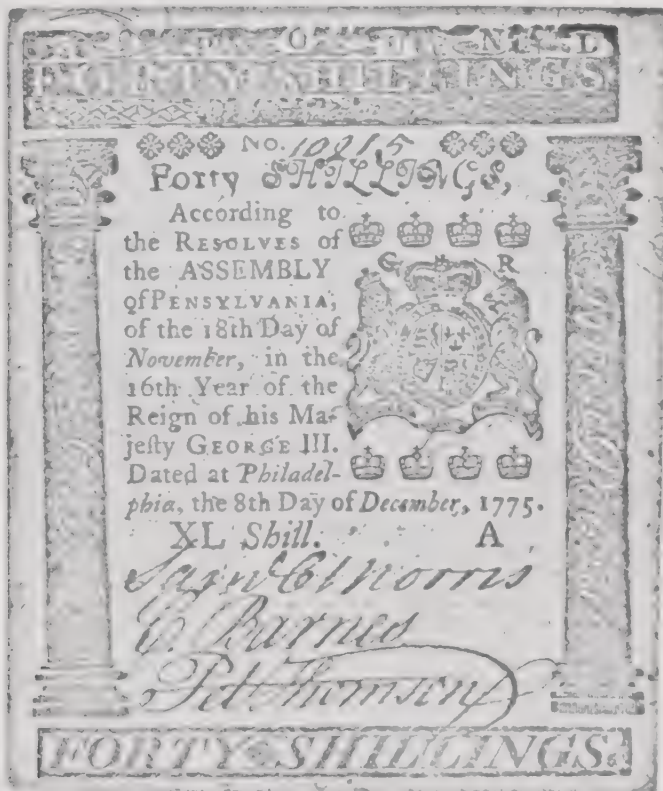 FORTY SHILLINGS
No. 10215
Forty SHILLINGS,
According to
the RESOLVES of
the ASSEMBLY
of PENSYLVANIA,
of the 18th Day of
November, in the
16th Year of the
Reign of his Ma-
jeſty GEORGE III.
Dated at Philadel-
phia, the 8th Day of December, 1775.
G R
XL Shill. A
Saml C Morris
C Barnes
Pet Thomson
FORTY SHILLINGS.